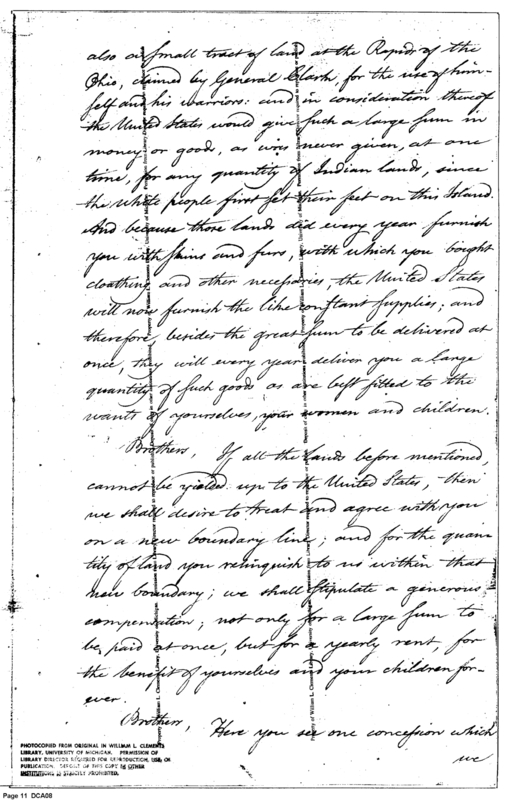 also a small tract of land at the Rapids of the
Ohio, claimed by General Clark, for the use of him-
self and his warriors: and in consideration thereof
the United States would give such a large sum in
money or goods, as was never given, at one
time, for any quantity of Indian lands, since
the white people first set their feet on this Island.
And because those lands did every year furnish
you with skins and furs, with which you bought
cloathing and other necessaries, the United States
will now furnish the like constant supplies; and
therefore, besides the great sum to be delivered at
once, they will every year deliver you a large
quantity of such goods as are best fitted to the
wants of yourselves, your women and children.
Brothers, If all the lands before mentioned,
cannot be yielded up to the United States, then
we shall desire to treat and agree with you
on a new boundary line; and for the quan
tity of land you relinquish to us within that
new boundary; we shall stipulate a generous
compensation; not only for a large sum to
be, paid at once, but for a yearly rent, for
the benefit of yourselves and your children for-
ever.
Brothers, Here you see one concession which
we
PHOTOCOPIED FROM ORIGINAL IN WILLIAM L. CLEMENTS
LIBRARY, UNIVERSITY OF MICHIGAN. PERMISSION OF
LIBRARY DIRECTOR REQUIRED FOR REPRODUCTION, USE, OR
PUBLICATION. DEPOSIT OF THIS COPY IN OTHER
INSTITUTIONS IS STRICTLY PROHIBITED.
Page 11 DCA08